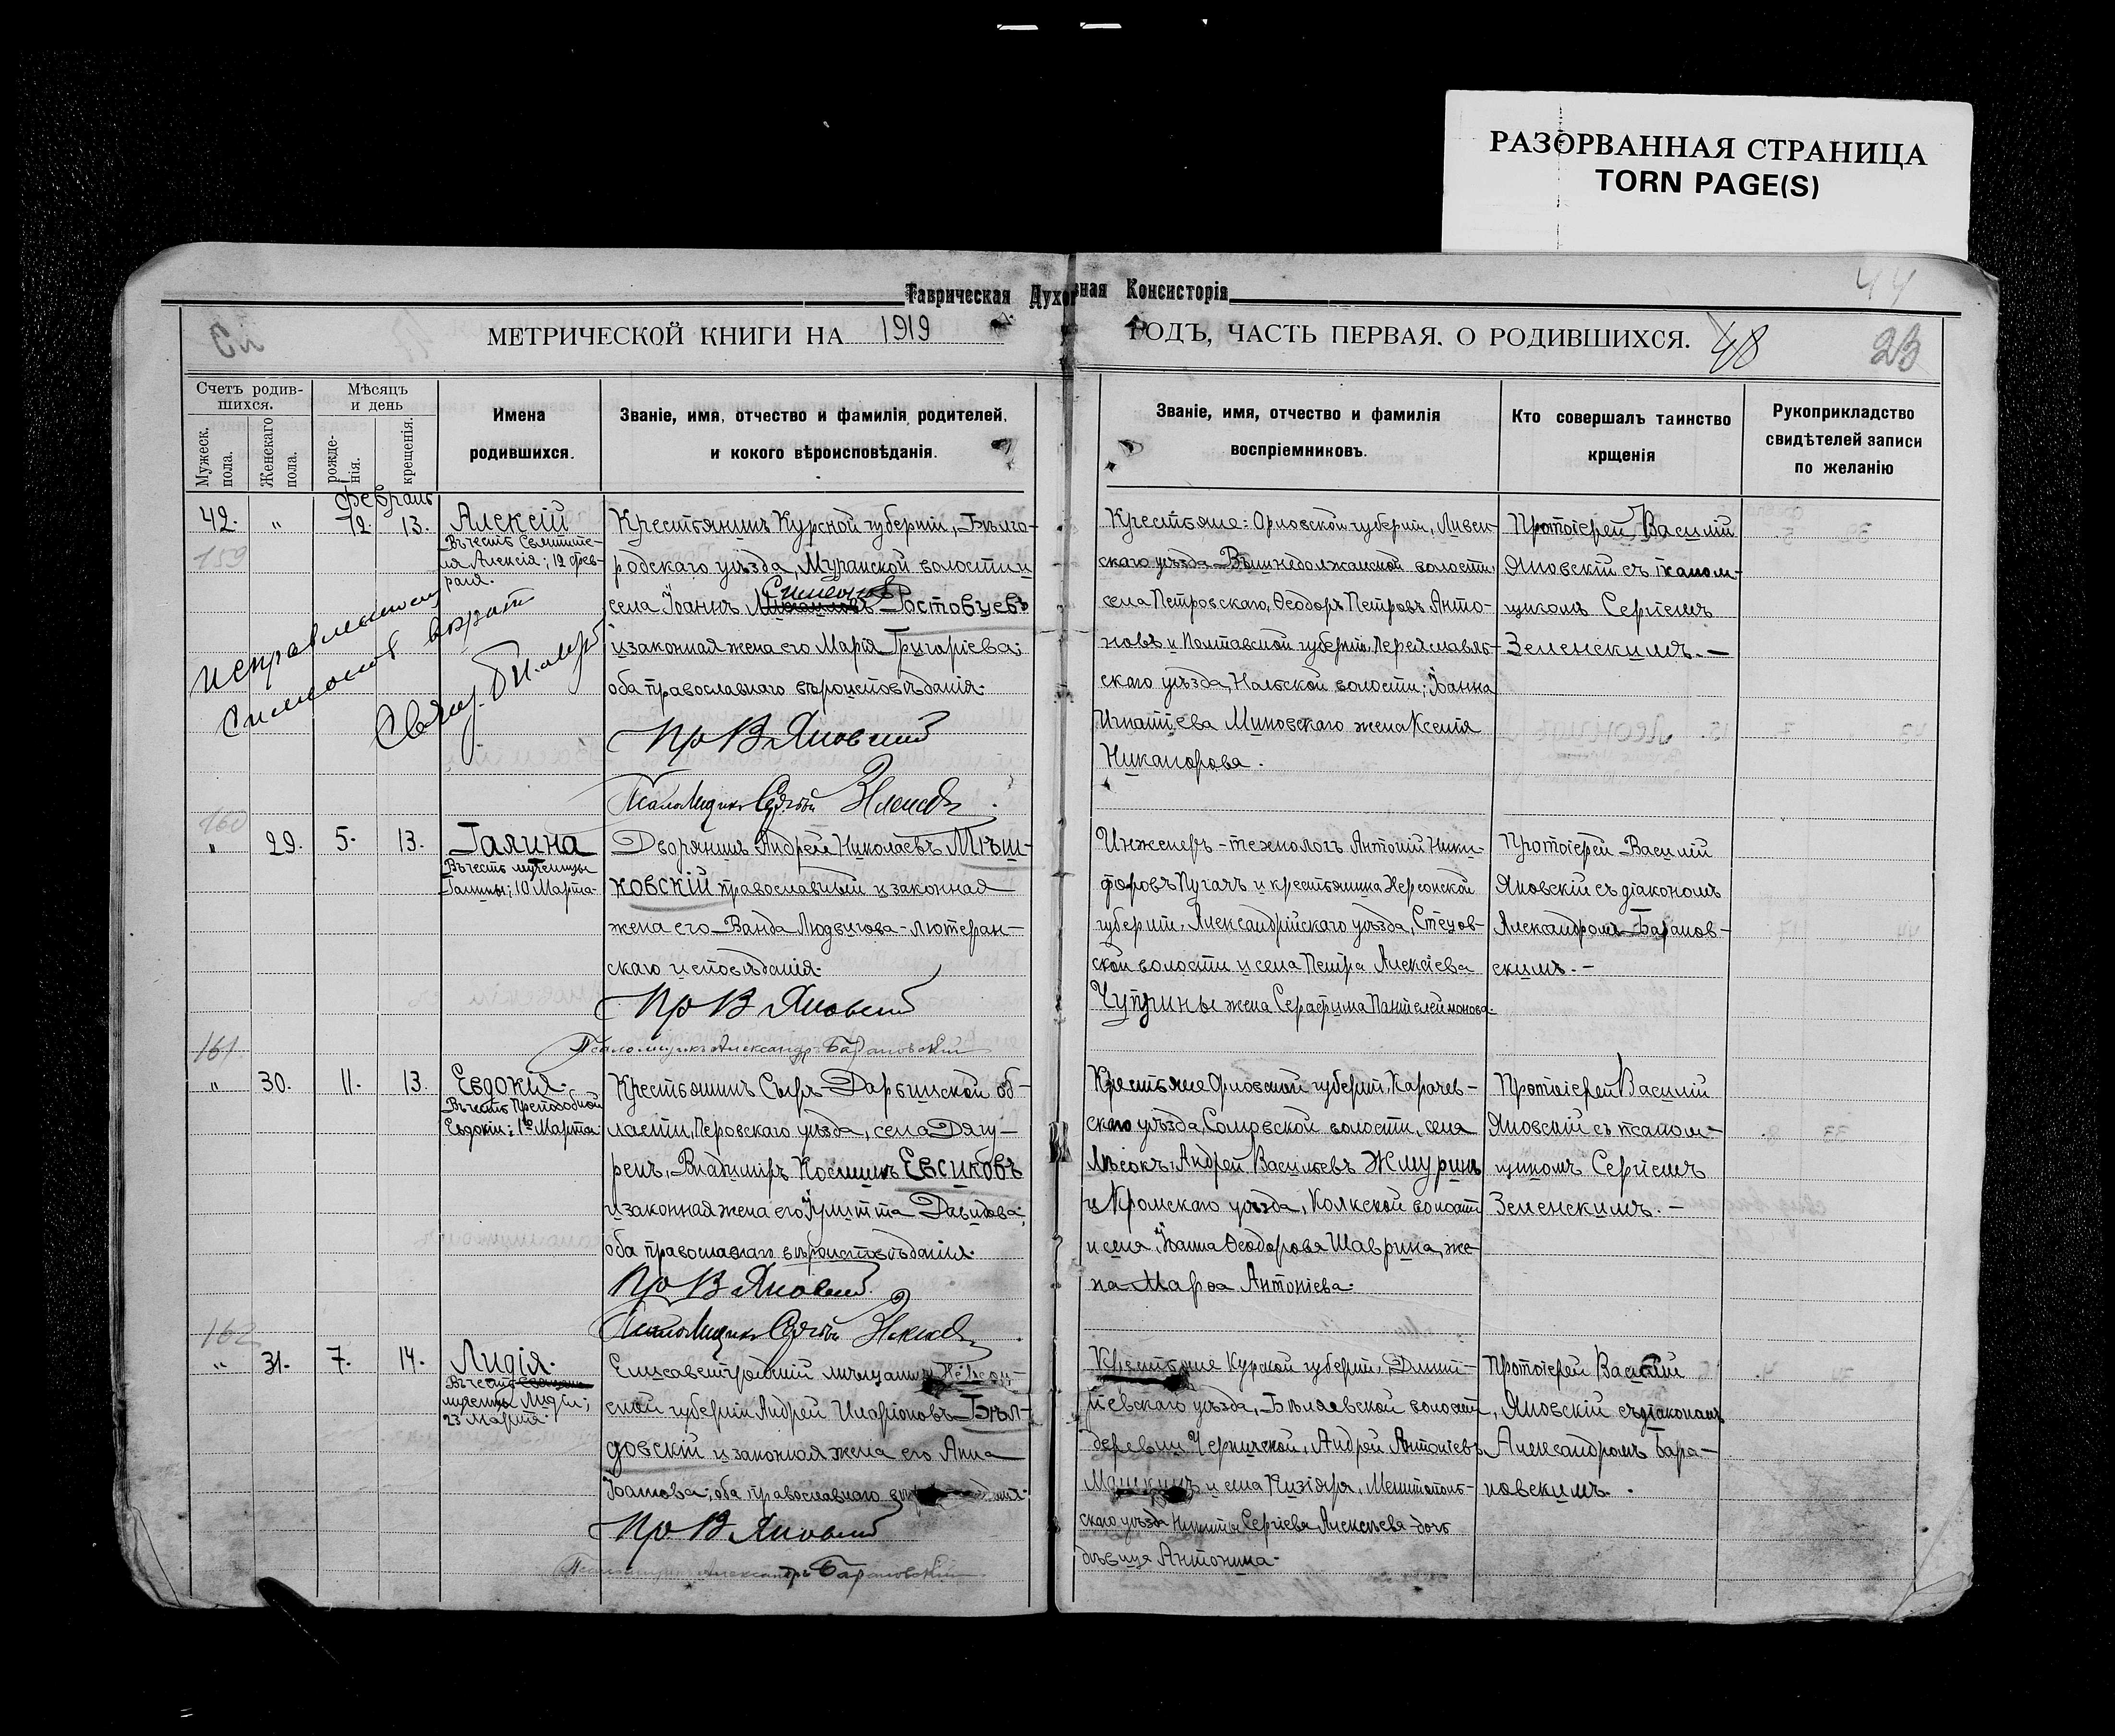 РАЗОРВАННАЯ СТРАНИЦА
TORN PAGE(S)
44
Таврическая Духовная Консисторія
МЕТРИЧЕСКОЙ КНИГИ НА 1919 ГОДЪ, ЧАСТЬ ПЕРВАЯ. О РОДИВШИХСЯ. 48 23
Счетъ родив-
шихся.
Мужеск. пола.
Женскаго пола.
Мѣсяцъ
и день
рожде-
нія.
крещенія.
Имена
родившихся.
Званіе, имя, отчество и фамилія родителей,
и кокого вѣроисповѣданія.
Званіе, имя, отчество и фамилія
воспріемниковъ.
Кто совершалъ таинство
крщенія
Рукоприкладство
свидѣтелей записи
по желанію
Февраль
42. " 12. 13.
159
Алексій
Въ честь Святите-
ля Алексія; 12 фев-
раля.
Исправленному
Симеонов вѣрить
Свящ.
Крестьянинъ Курской губерніи, Бѣлго-
родскаго уѣзда, Муранской волости и
села Іоаннъ Симеоновъ Ростовцевъ
и законная жена его Марія Григоріева;
оба православнаго вѣроисповѣданія.
Пр В Яновскій
Псаломщикъ Сергѣй Зеленскій
Крестьяне: Орловской губерніи, Ливен-
скаго уѣзда Вышнедолжанской волости,
села Петровскаго, Ѳеодоръ Петровъ Анто-
новъ и Полтавской губерніи, Переяслав-
скаго уѣзда, волости; Іоанна
Игнатіева Миновскаго жена Ксенія
Никанорова.
Протоіерей Василій
Яновскій съ псалом-
щикомъ Сергіемъ
Зеленскимъ.—
160
" 29. 5. 13.
Галина
Въ честь мученицы
Галины; 10 Марта.
Дворянинъ Андрей Николаевъ Мѣш-
ковскій православный и законная
жена его Ванда Людвигова - лютеран-
скаго исповѣданія.
Пр В Яновскій
Псаломщикъ Александръ Барановскій
Инженеръ - технологъ Антоній Ники-
форовъ Пугачъ и крестьянина Херсонской
губерніи, Александрійскаго уѣзда, Стецов-
ской волости и села Петра Алексіева
Чуприны жена Серафима Пантелеймонова.
Протоіерей Василій
Яновскій съ діакономъ
Александромъ Баранов-
скимъ.—
161
" 30. 11. 13.
Евдокія.
Въ честь Преподобной
Евдокіи; 1го Марта.
Крестьянинъ Сыръ-Дарьинской об-
ласти, Перовскаго уѣзда, села
Владиміръ Косминъ Евсиковъ
и законная жена его Давидова;
оба православнаго вѣроисповѣданія.
Пр В Яновскій
Псаломщикъ Сергѣй Зеленскій
Крестьяне Орловской губерніи, Карачев-
скаго уѣзда, волости, села
Андрей Васильевъ Жмуринъ
и Кромскаго уѣзда, волости
и села, Іоанна Ѳеодорова Шаврина, же-
на Марѳа Антоніева.
Протоіерей Василій
Яновскій съ псалом-
щикомъ Сергіемъ
Зеленскимъ.—
162
" 31. 7. 14.
Лидія.
Въ честь
мученицы Лидіи;
23 марта.
Елисаветградскій мѣщанинъ Херсон-
ской губерніи Андрей Иларіоновъ Бѣл-
довскій и законная жена его Анна
Іоаннова; оба православнаго
Пр В Яновскій
Псаломщикъ Александръ Барановскій
Крестьяне Курской губерніи, Дмит-
ріевскаго уѣзда, Бѣляевской волости,
деревни Андрей Антоніевъ
и села Кизіяра, Мелитополь-
скаго уѣзда Никиты Сергіева Алексѣева дочь
дѣвица Антонина.
Протоіерей Василій
Яновскій съ діакономъ
Александромъ Бара-
новскимъ.